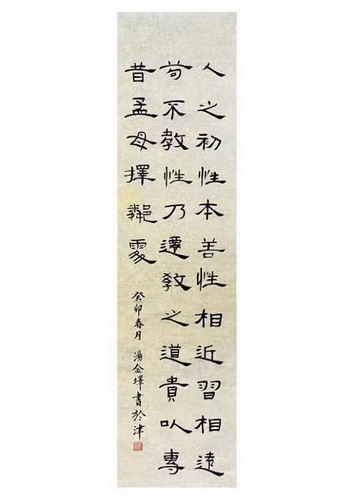 人之初性本善性相近習相遠
苟不教性乃遷教之道貴以專
昔孟母擇鄰處
癸卯春月 湯金書於津